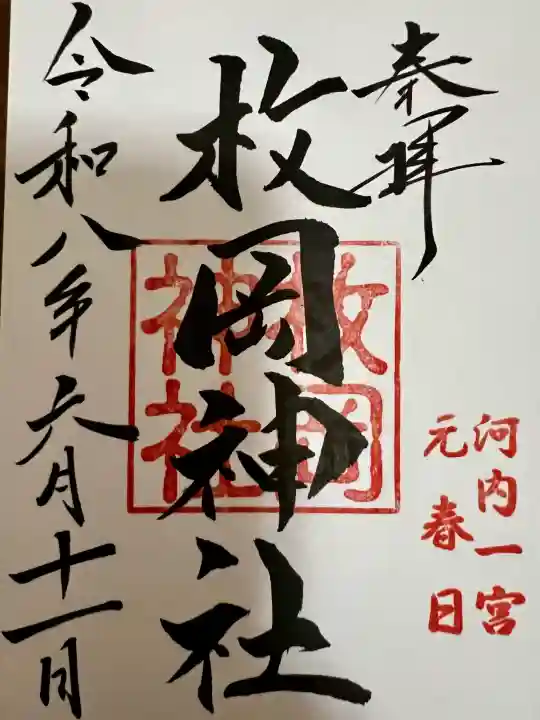 奉拝
河内一宮
元春日
枚岡神社
枚岡
神社
令和八年六月十一日